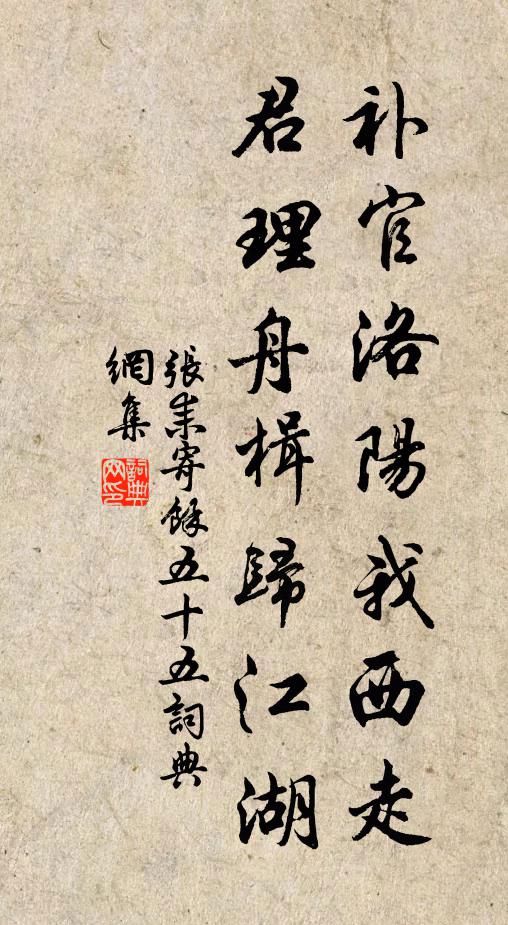 补官洛陽我西走
君理舟楫歸江湖
張耒寄餘五十五詞典
網集
詞典
網印